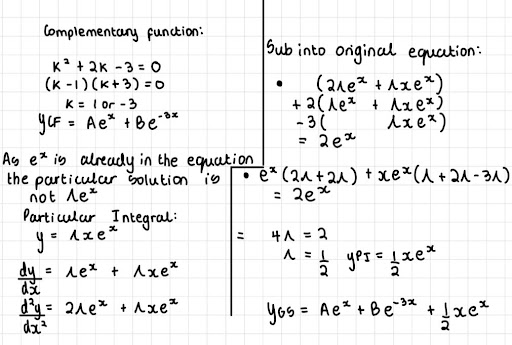 Complementary function:
K² + 2K - 3 = 0
(K - 1)(K + 3) = 0
K = 1 or -3
yCF = Aeˣ + Be⁻³ˣ
As eˣ is already in the equation
the particular solution is
not λeˣ
Particular Integral:
y = λxeˣ
dy/dx = λeˣ + λxeˣ
d²y/dx² = 2λeˣ + λxeˣ
Sub into original equation:
• (2λeˣ + λxeˣ)
+ 2(λeˣ + λxeˣ)
- 3( λxeˣ)
= 2eˣ
• eˣ(2λ + 2λ) + xeˣ(λ + 2λ - 3λ)
= 2eˣ
= 4λ = 2
λ = 1/2 yPI = 1/2 xeˣ
yGS = Aeˣ + Be⁻³ˣ + 1/2 xeˣ